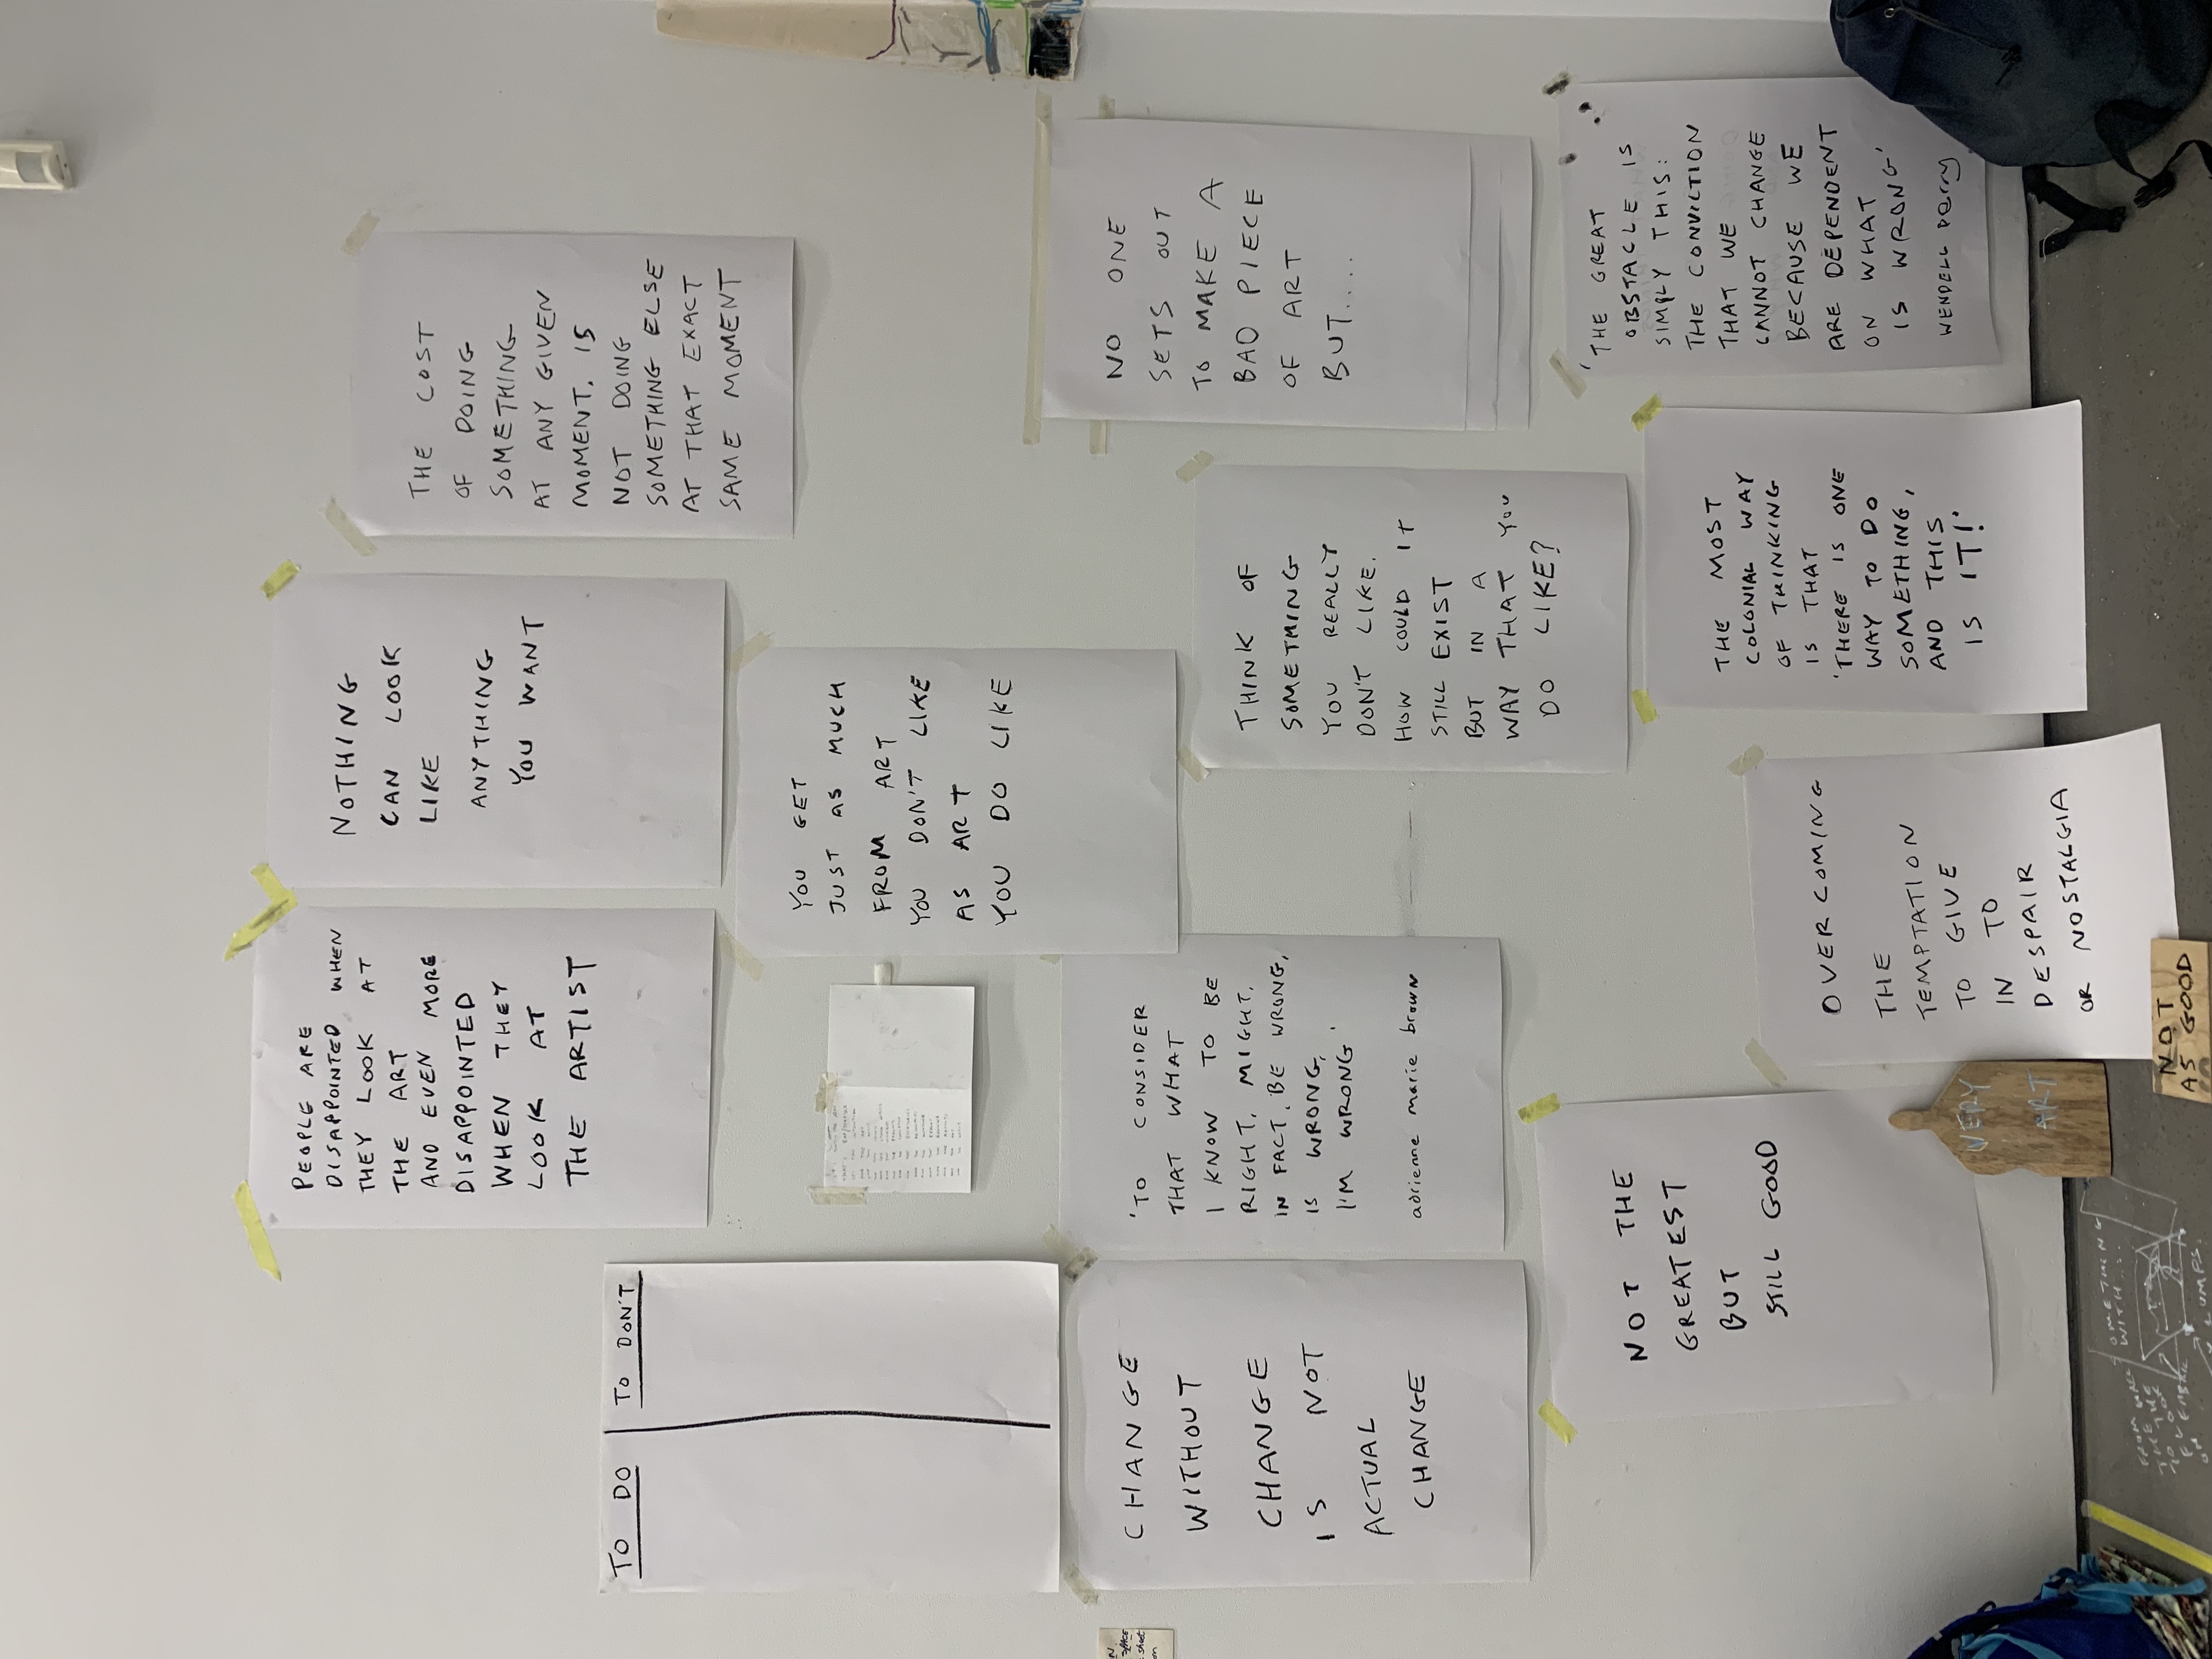 PEOPLE ARE
DISAPPOINTED WHEN
THEY LOOK AT
THE ART
AND EVEN MORE
DISAPPOINTED
WHEN THEY
LOOK AT
THE ARTIST
NOTHING
CAN LOOK
LIKE
ANYTHING
YOU WANT
THE COST
OF DOING
SOMETHING
AT ANY GIVEN
MOMENT, IS
NOT DOING
SOMETHING ELSE
AT THAT EXACT
SAME MOMENT
TO DO
TO DON'T
YOU GET
JUST AS MUCH
FROM ART
YOU DON'T LIKE
AS ART
YOU DO LIKE
CHANGE
WITHOUT
CHANGE
IS NOT
ACTUAL
CHANGE
'TO CONSIDER
THAT WHAT
I KNOW TO BE
RIGHT, MIGHT,
IN FACT, BE WRONG,
IS WRONG,
I'M WRONG.'
adrienne marie brown
THINK OF
SOMETHING
YOU REALLY
DON'T LIKE.
HOW COULD IT
STILL EXIST
BUT IN A
WAY THAT YOU
DO LIKE?
NO ONE
SETS OUT
TO MAKE A
BAD PIECE
OF ART
BUT....
NOT THE
GREATEST
BUT
STILL GOOD
OVER COMING
THE
TEMPTATION
TO GIVE
IN TO
DESPAIR
OR NOSTALGIA
THE MOST
COLONIAL WAY
OF THINKING
IS THAT
'THERE IS ONE
WAY TO DO
SOMETHING,
AND THIS
IS IT!'
'THE GREAT
OBSTACLE IS
SIMPLY THIS:
THE CONVICTION
THAT WE
CANNOT CHANGE
BECAUSE WE
ARE DEPENDENT
ON WHAT
IS WRONG'
WENDELL Berry
VERY
ART
NOT
AS GOOD